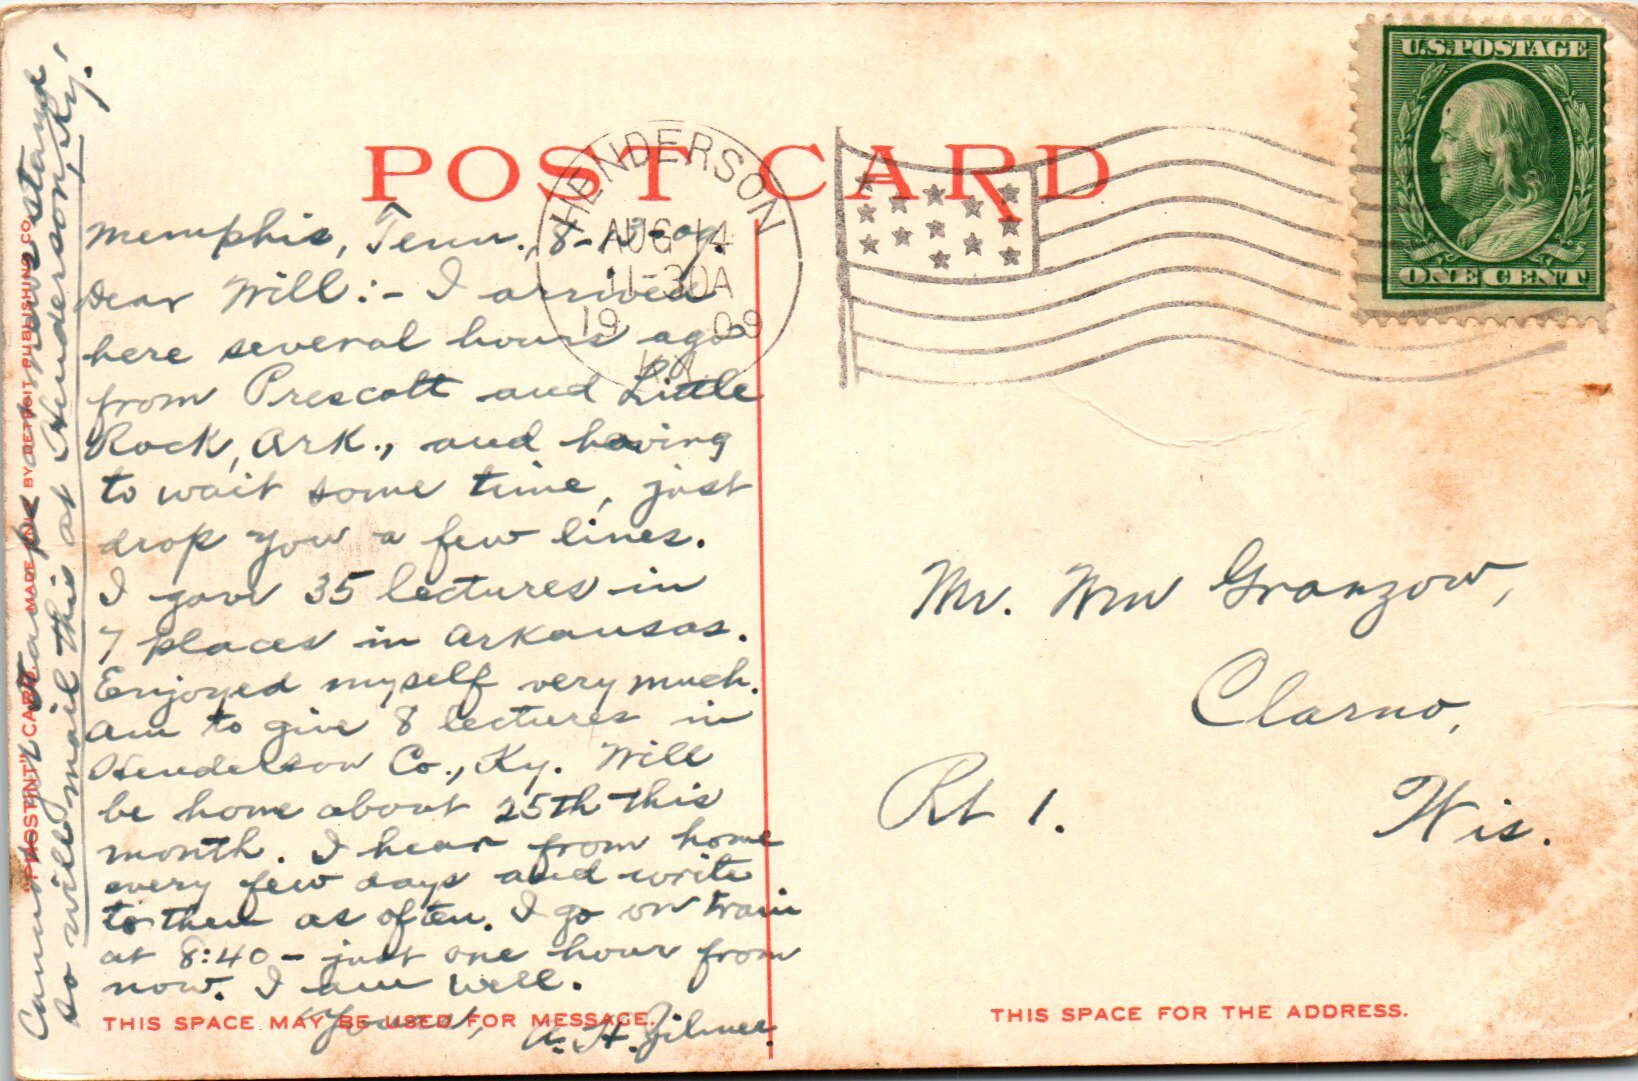 POST CARD
U.S. POSTAGE
ONE CENT
HENDERSON
AUG 14
11-30A
1909
KY.
Memphis, Tenn., 8-13-09.
Dear Will:- I arrived
here several hours ago
from Prescott and Little
Rock, Ark., and having
to wait some time, just
drop you a few lines.
I gave 35 lectures in
7 places in Arkansas.
Enjoyed myself very much.
Am to give 8 lectures in
Henderson Co., Ky. Will
be home about 25th this
month. I hear from home
every few days and write
to them as often. I go on train
at 8:40 - just one hour from
now. I am well.
Yours,
Cannot get stamp at news stand
so will mail this at Henderson, Ky.
"PHOSTINT" CARD MADE ONLY BY DETROIT PUBLISHING CO.
Mr. Wm Granzow,
Clarno,
Rt 1. Wis.
THIS SPACE MAY BE USED FOR MESSAGE.
THIS SPACE FOR THE ADDRESS.